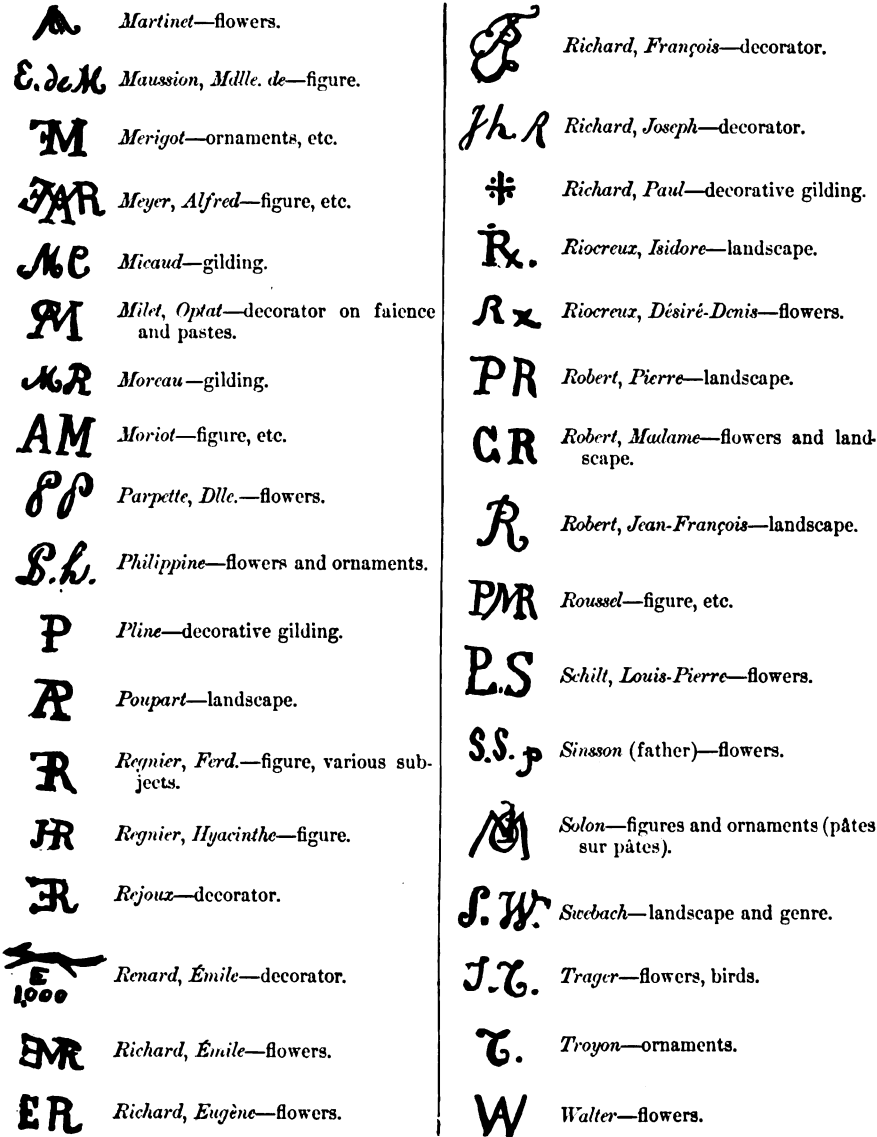 Martinet—flowers.
E. de M Maussion, Mdlle. de—figure.
Merigot—ornaments, etc.
Meyer, Alfred—figure, etc.
MC Micaud—gilding.
Milet, Optat—decorator on faience
and pastes.
MR Moreau—gilding.
AM Moriot—figure, etc.
PP Parpette, Dlle.—flowers.
P.h. Philippine—flowers and ornaments.
P Pline—decorative gilding.
Poupart—landscape.
Regnier, Ferd.—figure, various sub-
jects.
Regnier, Hyacinthe—figure.
Rejoux—decorator.
E
1,000 Renard, Émile—decorator.
Richard, Émile—flowers.
ER Richard, Eugène—flowers.
Richard, François—decorator.
Jh. R Richard, Joseph—decorator.
Richard, Paul—decorative gilding.
Rx. Riocreux, Isidore—landscape.
Rx Riocreux, Désiré-Denis—flowers.
PR Robert, Pierre—landscape.
CR Robert, Madame—flowers and land-
scape.
R Robert, Jean-François—landscape.
PMR Roussel—figure, etc.
P.S Schilt, Louis-Pierre—flowers.
S.S.p Sinsson (father)—flowers.
Solon—figures and ornaments (pâtes
sur pâtes).
S.W. Swebach—landscape and genre.
J.T. Trager—flowers, birds.
T. Troyon—ornaments.
W Walter—flowers.